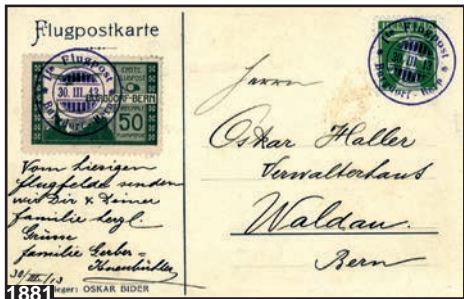 Flugpostkarte
1te Flugpost
30. III. 13
Burgdorf-Bern
ERSTE
FLUGPOST
BURGDORF-BERN
50
1te Flugpost
30. III. 13
Burgdorf-Bern
Herrn
Oskar Haller
Verwalterhaus
Waldau.
Bern
Vom hiesigen
Flugfelde senden
wir Dir & Deiner
Familie herzl.
Grüsse
Familie Gerber-
30/III/13
ieger: OSKAR BIDER
1881